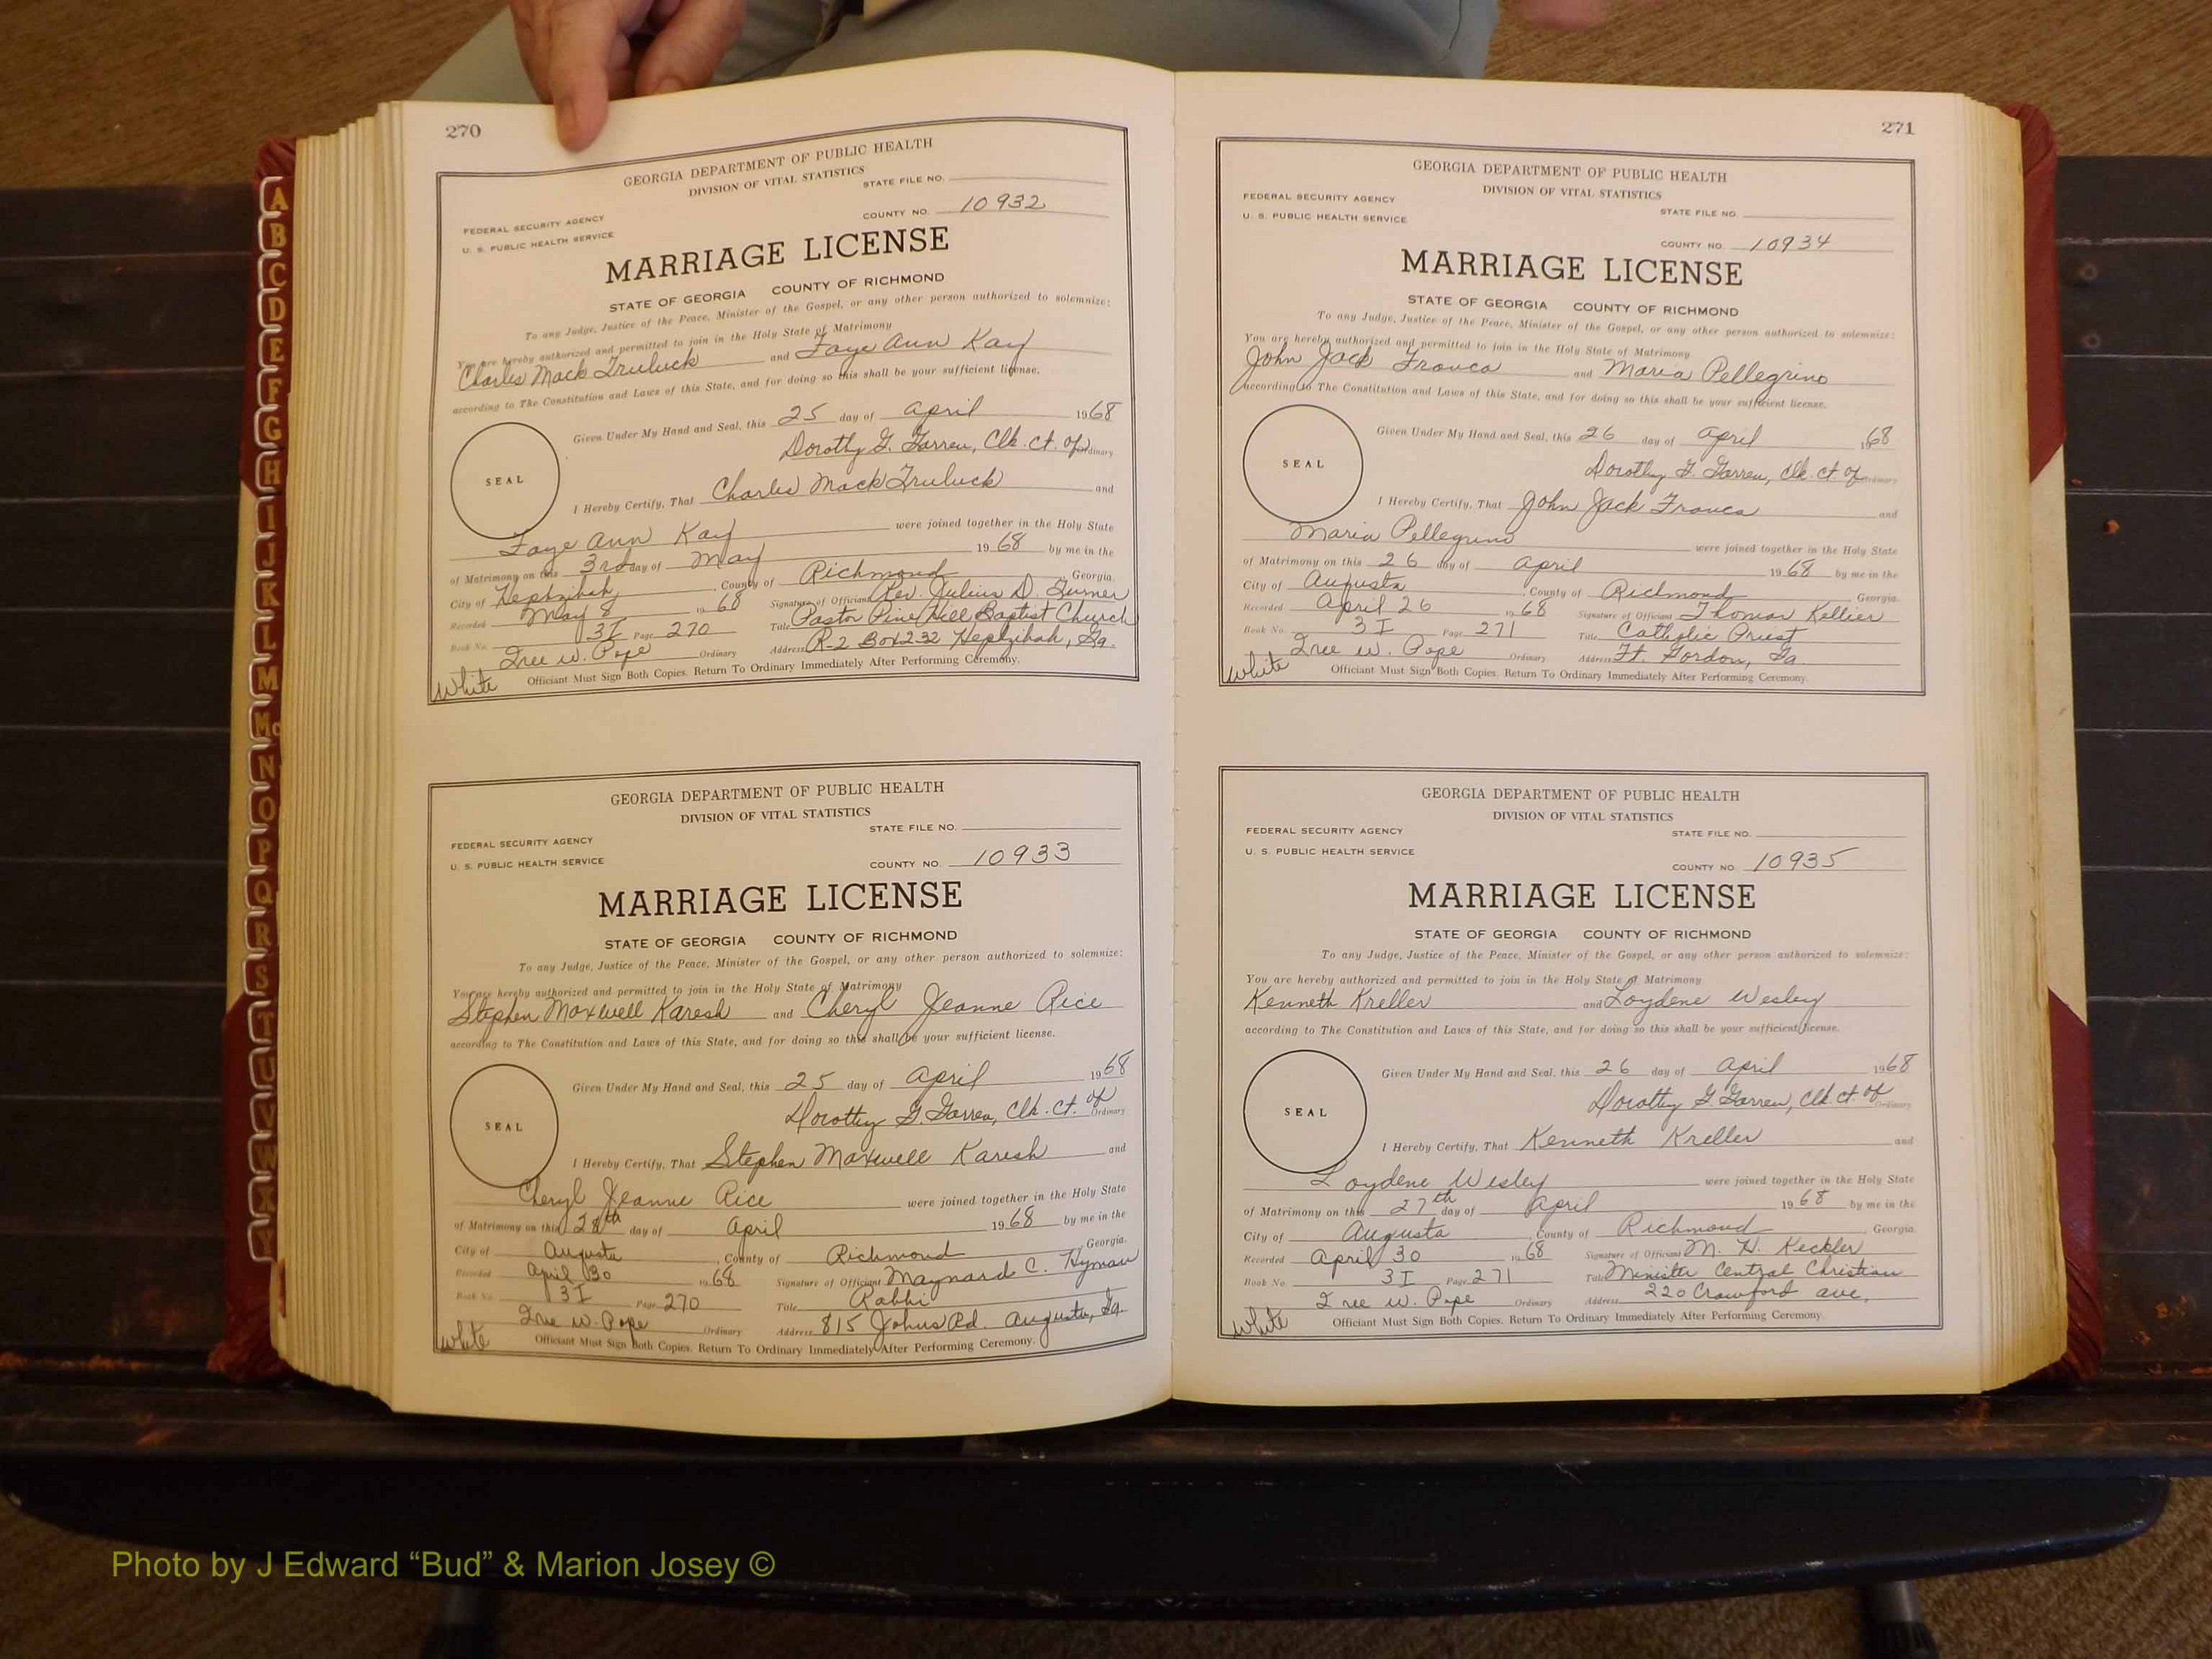 270
GEORGIA DEPARTMENT OF PUBLIC HEALTH
DIVISION OF VITAL STATISTICS
STATE FILE NO.
FEDERAL SECURITY AGENCY
COUNTY NO. 10932
U. S. PUBLIC HEALTH SERVICE
MARRIAGE LICENSE
STATE OF GEORGIA COUNTY OF RICHMOND
To any Judge, Justice of the Peace, Minister of the Gospel, or any other person authorized to solemnize:
You are hereby authorized and permitted to join in the Holy State of Matrimony
Charles Mack Truluck and Faye Ann Kay
according to The Constitution and Laws of this State, and for doing so this shall be your sufficient license.
Given Under My Hand and Seal, this 25 day of April 1968
Dorothy G. Garren, Clk. Ct. of Ordinary
SEAL
I Hereby Certify, That Charles Mack Truluck and
Faye Ann Kay were joined together in the Holy State
of Matrimony on this 3rd day of May 1968 by me in the
City of Hephzibah, County of Richmond Georgia.
Recorded May 8 1968 Signature of Officiant Rev. Julius D. Turner
Book No. 3I Page 270 Title Pastor Pine Hill Baptist Church
Iree W. Pope Ordinary Address R-2 Box 232 Hephzibah, Ga.
White Officiant Must Sign Both Copies. Return To Ordinary Immediately After Performing Ceremony.
GEORGIA DEPARTMENT OF PUBLIC HEALTH
DIVISION OF VITAL STATISTICS
STATE FILE NO.
FEDERAL SECURITY AGENCY
U. S. PUBLIC HEALTH SERVICE
COUNTY NO. 10933
MARRIAGE LICENSE
STATE OF GEORGIA COUNTY OF RICHMOND
To any Judge, Justice of the Peace, Minister of the Gospel, or any other person authorized to solemnize:
You are hereby authorized and permitted to join in the Holy State of Matrimony
Stephen Maxwell Karesh and Cheryl Jeanne Rice
according to The Constitution and Laws of this State, and for doing so this shall be your sufficient license.
Given Under My Hand and Seal, this 25 day of April 1968
Dorothy G. Garren, Clk. Ct. of Ordinary
SEAL
I Hereby Certify, That Stephen Maxwell Karesh and
Cheryl Jeanne Rice were joined together in the Holy State
of Matrimony on this 28th day of April 1968 by me in the
City of Augusta, County of Richmond Georgia.
Recorded April 30 1968 Signature of Officiant Maynard C. Hyman
Book No. 3I Page 270 Title Rabbi
Iree W. Pope Ordinary Address 815 Johns Rd. Augusta, Ga.
White Officiant Must Sign Both Copies. Return To Ordinary Immediately After Performing Ceremony.
271
GEORGIA DEPARTMENT OF PUBLIC HEALTH
DIVISION OF VITAL STATISTICS
FEDERAL SECURITY AGENCY
STATE FILE NO.
U. S. PUBLIC HEALTH SERVICE
COUNTY NO. 10934
MARRIAGE LICENSE
STATE OF GEORGIA COUNTY OF RICHMOND
To any Judge, Justice of the Peace, Minister of the Gospel, or any other person authorized to solemnize:
You are hereby authorized and permitted to join in the Holy State of Matrimony
John Jack Franco and Maria Pellegrino
according to The Constitution and Laws of this State, and for doing so this shall be your sufficient license.
Given Under My Hand and Seal, this 26 day of April 1968
Dorothy G. Garren, Clk. Ct. of Ordinary
SEAL
I Hereby Certify, That John Jack Franco and
Maria Pellegrino were joined together in the Holy State
of Matrimony on this 26 day of April 1968 by me in the
City of Augusta, County of Richmond Georgia.
Recorded April 26 1968 Signature of Officiant Thomas Kellier
Book No. 3I Page 271 Title Catholic Priest
Iree W. Pope Ordinary Address Ft. Gordon, Ga.
White Officiant Must Sign Both Copies. Return To Ordinary Immediately After Performing Ceremony.
GEORGIA DEPARTMENT OF PUBLIC HEALTH
DIVISION OF VITAL STATISTICS
FEDERAL SECURITY AGENCY
STATE FILE NO.
U. S. PUBLIC HEALTH SERVICE
COUNTY NO. 10935
MARRIAGE LICENSE
STATE OF GEORGIA COUNTY OF RICHMOND
To any Judge, Justice of the Peace, Minister of the Gospel, or any other person authorized to solemnize:
You are hereby authorized and permitted to join in the Holy State of Matrimony
Kenneth Kreller and Loydene Wesley
according to The Constitution and Laws of this State, and for doing so this shall be your sufficient license.
Given Under My Hand and Seal, this 26 day of April 1968
Dorothy G. Garren, Clk. Ct. of Ordinary
SEAL
I Hereby Certify, That Kenneth Kreller and
Loydene Wesley were joined together in the Holy State
of Matrimony on this 27th day of April 1968 by me in the
City of Augusta, County of Richmond Georgia.
Recorded April 30 1968 Signature of Officiant M. H. Keckler
Book No. 3I Page 271 Title Minister Central Christian
Iree W. Pope Ordinary Address 220 Crawford Ave.
White Officiant Must Sign Both Copies. Return To Ordinary Immediately After Performing Ceremony.
A
B
C
D
E
F
G
H
I
J
K
L
M
Mc
N
O
P
Q
R
S
T
U
V
W
X
Y
Photo by J Edward “Bud” & Marion Josey ©